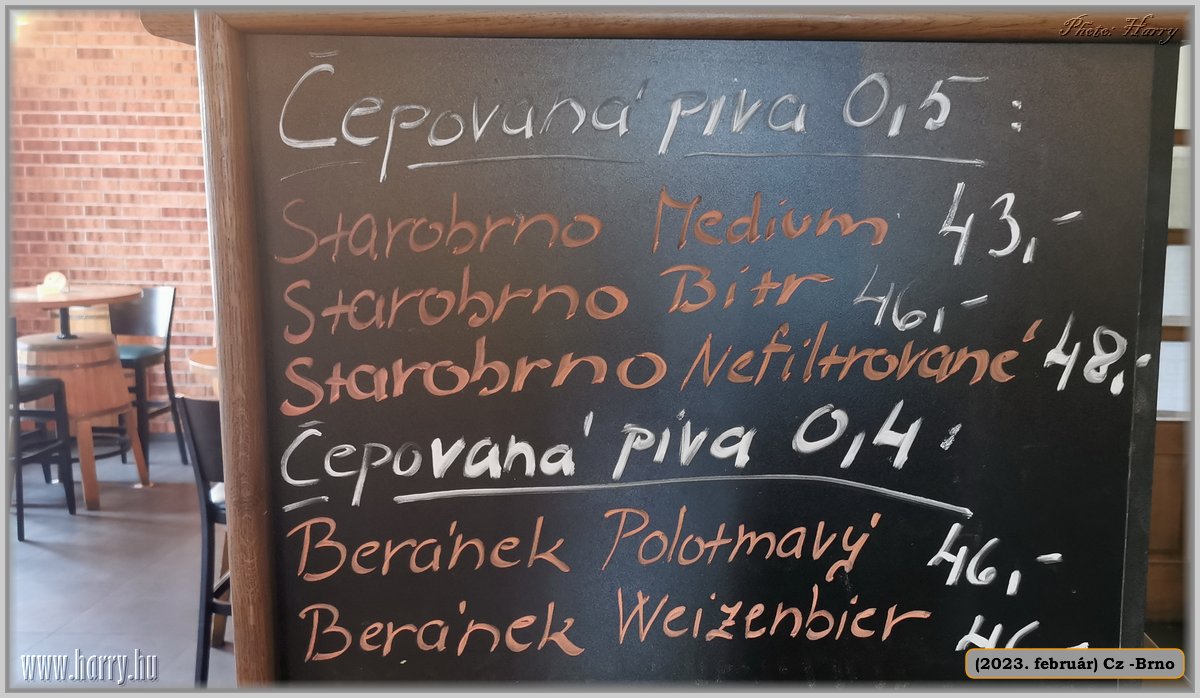 Photo: Harry
Čepovaná piva 0,5 :
Starobrno Medium 43,-
Starobrno Bitr 46,-
Starobrno Nefiltrované 48,-
Čepovaná piva 0,4 :
Beránek Polotmavý 46,-
Beránek Weizenbier 46,-
www.harry.hu
(2023. február) Cz -Brno